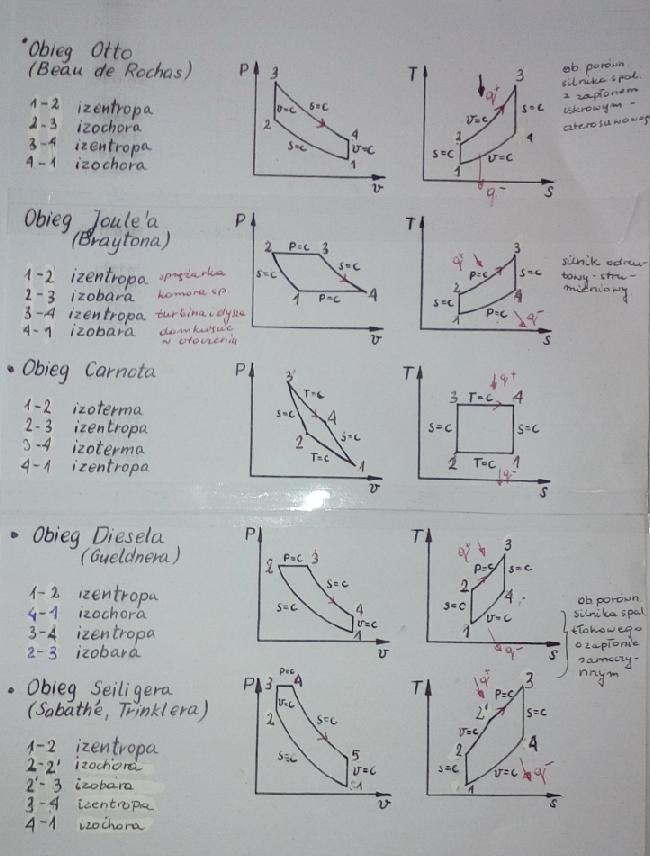 Obieg Otto
(Beau de Rochas)
1-2 izentropa
2-3 izochora
3-4 izentropa
4-1 izochora
P
3
v=c
s=c
2
4
s=c
v=c
1
v
T
q+
3
v=c
s=c
2
s=c
4
v=c
1
q-
s
ob. porówn.
silnika spal.
z zapłonem
iskrowym -
czterosuwowego
Obieg Joule'a
(Braytona)
1-2 izentropa sprężarka
2-3 izobara komora sp.
3-4 izentropa turbina i dysza
4-1 izobara
w otoczeniu
P
2 P=c 3
s=c
s=c
1 P=c 4
v
T
q+
3
P=c
s=c
2
s=c
4
1 P=c
q-
s
silnik odrzu-
towy - stru-
mieniowy
Obieg Carnota
1-2 izoterma
2-3 izentropa
3-4 izoterma
4-1 izentropa
P
3
T=c
s=c
4
2
s=c
T=c
1
v
T
q+
3 T=c 4
s=c
s=c
2 T=c 1
q-
s
Obieg Diesela
(Gueldnera)
1-2 izentropa
4-1 izochora
3-4 izentropa
2-3 izobara
P
2 P=c 3
s=c
s=c
4
v=c
1
v
T
q+
3
P=c
s=c
2
s=c
4
1 v=c
q-
s
ob. porówn.
silnika spal.
tłokowego
o zapłonie
samoczy-
nnym
Obieg Seiligera
(Sabathé, Trinklera)
1-2 izentropa
2-2' izochora
2'-3 izobara
3-4 izentropa
4-1 izochora
P
P=c
3 4
v=c
2
s=c
s=c
5
v=c
1
v
T
q+
3
P=c
2'
v=c
s=c
2
4
s=c
v=c
1
q-
s